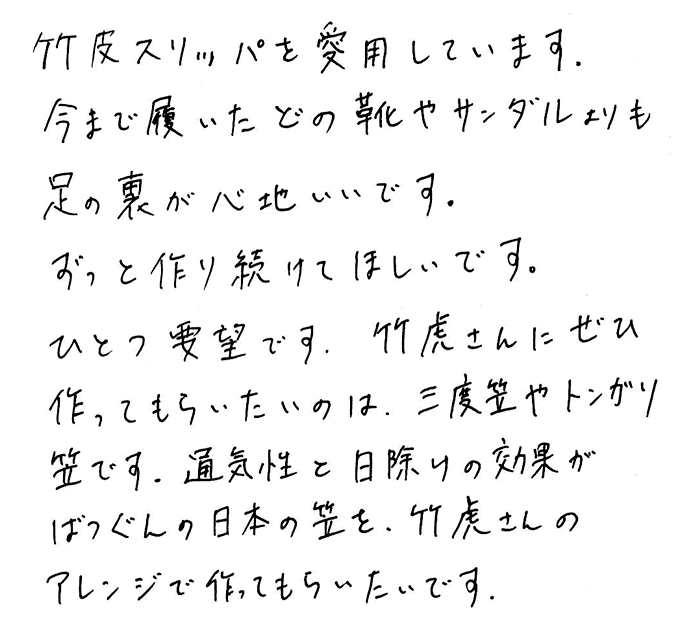 竹皮スリッパを愛用しています.
今まで履いたどの靴やサンダルよりも
足の裏が心地いいです。
ずっと作り続けてほしいです。
ひとつ要望です. 竹虎さんにぜひ
作ってもらいたいのは、三度笠やトンガリ
笠です. 通気性と日除けの効果が
ばつぐんの日本の笠を、竹虎さんの
アレンジで作ってもらいたいです.